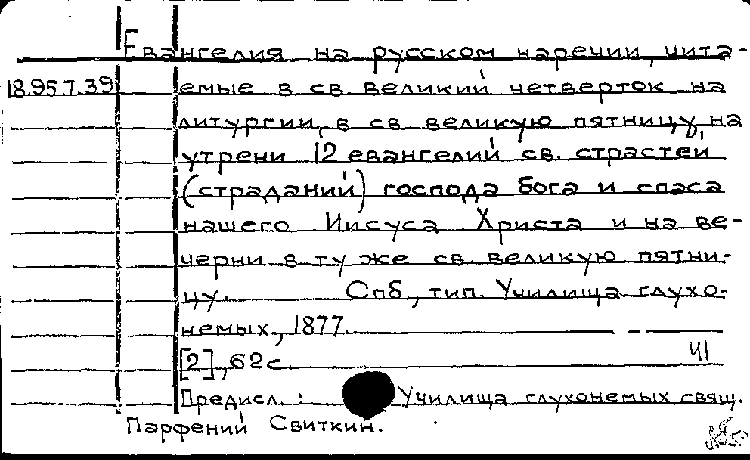 Евангелия на русском наречии, чита-
18.957.39 емые в св. великий четверток на
литургии, в св. великую пятницу, на
утрени 12 евангелий св. страстей
(страданий) господа бога и спаса
нашего Иисуса Христа и на ве-
черни в ту же св. великую пятни-
цу. Спб, тип. Училища глухо-
немых, 1877.
[2], 62 с. 41
Предисл.: Училища глухонемых свящ.
Парфений Свиткин.